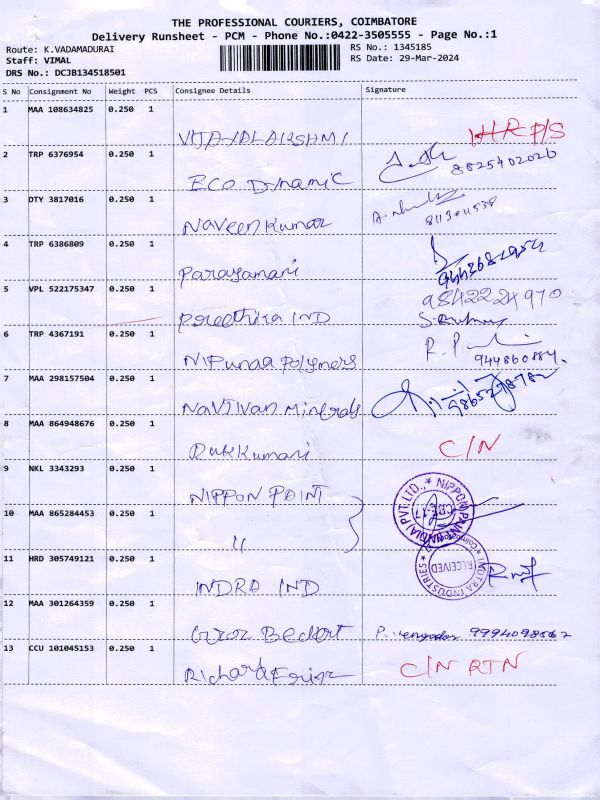 THE PROFESSIONAL COURIERS, COIMBATORE
Delivery Runsheet - PCM - Phone No.:0422-3505555 - Page No.:1
Route: K.VADAMADURAI
RS No.: 1345185
Staff: VIMAL
RS Date: 29-Mar-2024
DRS No.: DCJB134518501
S No Consignment No Weight PCS Consignee Details Signature
1 MAA 108634825 0.250 1
VIJAYALAKSHMI P/S
2 TRP 6376954 0.250 1
ECO Dynamic 8825402026
3 OTY 3817016 0.250 1
Naveen Kumar
4 TRP 6386809 0.250 1
Parayamani
5 VPL 522175347 0.250 1 9842224970
Preethika IND
6 TRP 4367191 0.250 1 R. P
Nipunaa Polymers 944860884.
7 MAA 298157504 0.250 1
NavJivan Minerals
8 MAA 864948676 0.250 1 C/N
Rukkumani
9 NKL 3343293 0.250 1
NIPPON PAINT
10 MAA 865284453 0.250 1
"
NIPPON PAINT (INDIA) PVT. LTD.,
11 HRD 305749121 0.250 1
INDRA IND
INDUSTRIES
RECEIVED
12 MAA 301264359 0.250 1
Groz Beckert P. 9994098562
13 CCU 101045153 0.250 1 C/N RTN
Richard